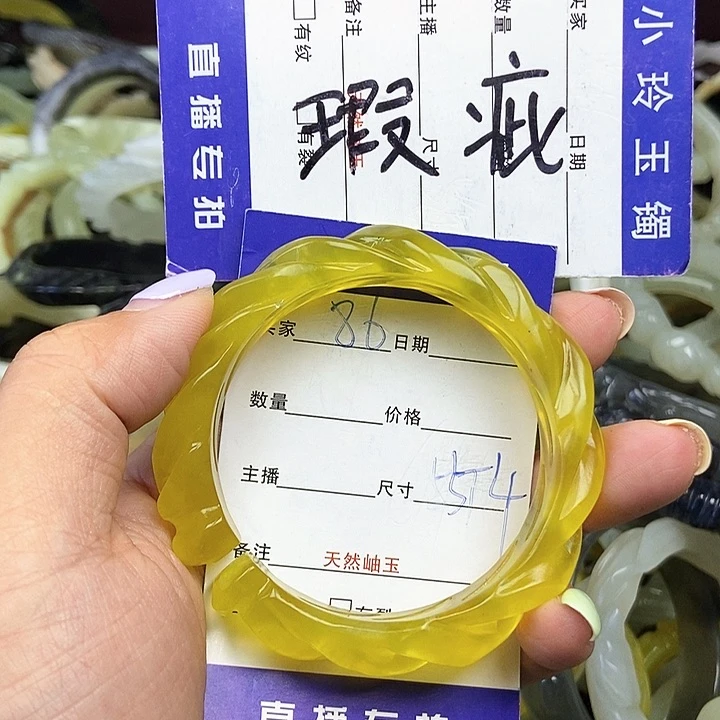 小玲玉镯
买家
日期
数量
主播
尺寸
备注
天然岫玉
有纹
有裂
直播专拍
瑕疵
买家 86 日期
数量 价格
主播 尺寸 54
备注 天然岫玉
有裂
直播专拍